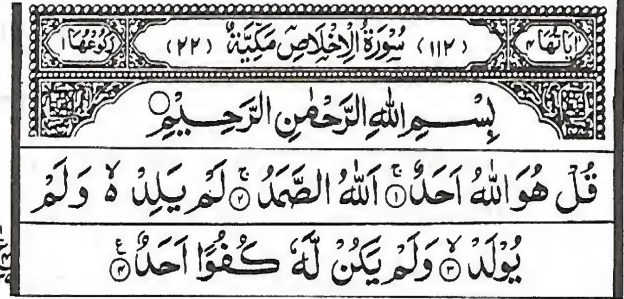 اٰیَاتُهَا ۴ (۱۱۲) سُوْرَةُ الْاِخْلَاصِ مَكِّیَّةٌ (۲۲) رُكُوْعُهَا ۱
بِسْمِ اللّٰهِ الرَّحْمٰنِ الرَّحِیْمِ
قُلْ هُوَ اللّٰهُ اَحَدٌ ۚ﴿۱﴾ اَللّٰهُ الصَّمَدُ ۚ﴿۲﴾ لَمْ یَلِدْ ۙ۬ وَ لَمْ
یُوْلَدْ ۙ﴿۳﴾ وَ لَمْ یَكُنْ لَّهٗ كُفُوًا اَحَدٌ ﴿۴﴾ع